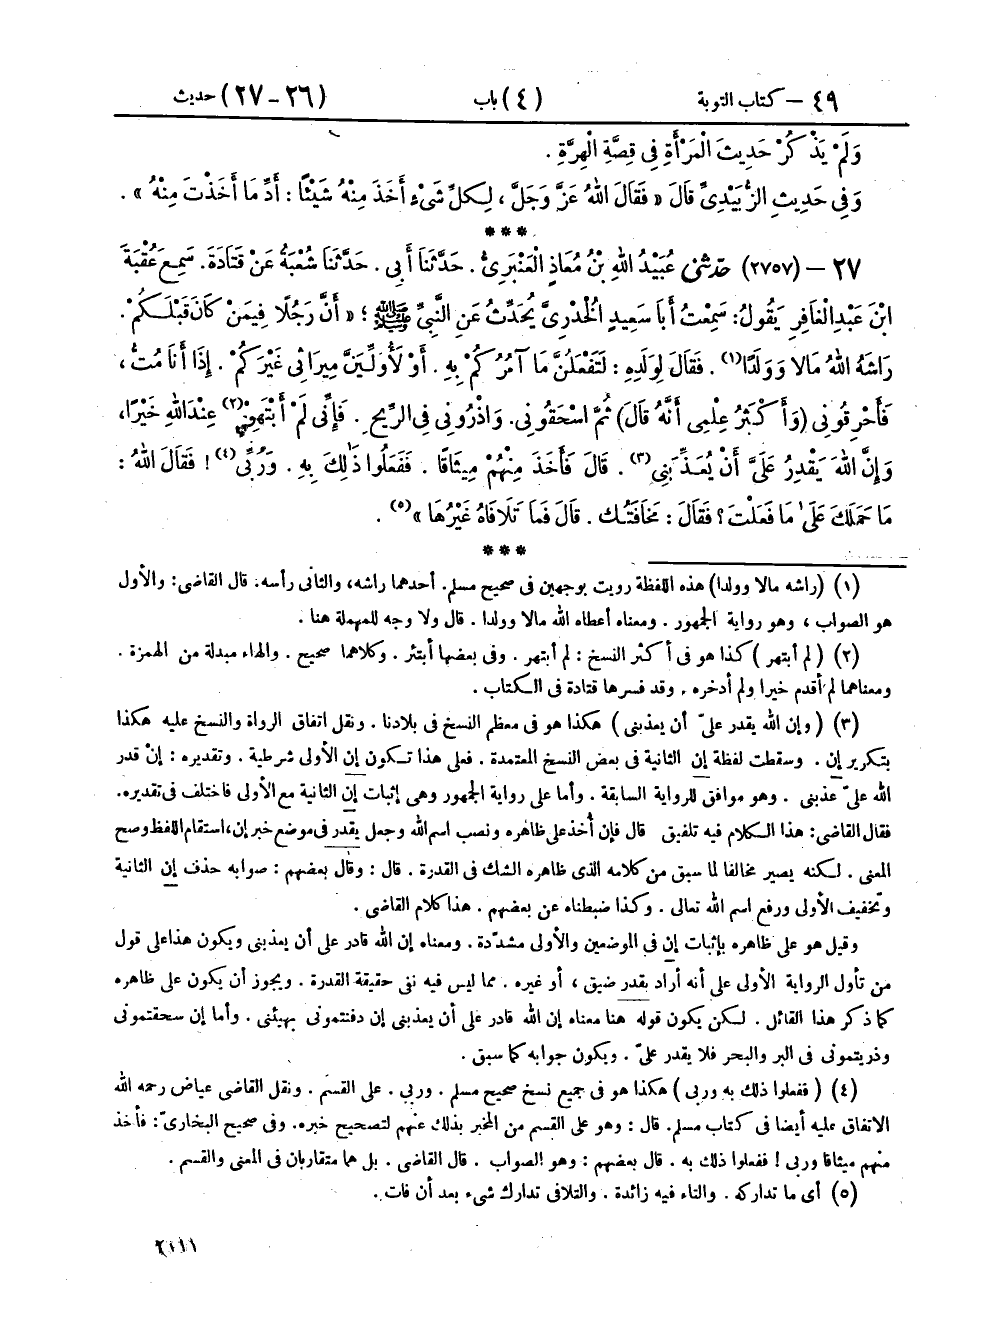 ٤٩ – كتاب التوبة (٤) باب (٢٦ – ٢٧) حديث
وَلَمْ يَذْكُرْ حَدِيثَ الْمَرْأَةِ فِي قِصَّةِ الْهِرَّةِ .
وَفِي حَدِيثِ الزُّبَيْدِيِّ قَالَ « فَقَالَ اللهُ عَزَّ وَجَلَّ ، لِكُلِّ شَيْءٍ أَخَذَ مِنْهُ شَيْئًا : أَدِّ مَا أَخَذْتَ مِنْهُ » .
***
٢٧ – (٢٧٥٧) حَدَّثَنِي عُبَيْدُ اللهِ بْنُ مُعَاذٍ الْعَنْبَرِيُّ . حَدَّثَنَا أَبِي . حَدَّثَنَا شُعْبَةُ عَنْ قَتَادَةَ . سَمِعَ عُقْبَةَ
ابْنَ عَبْدِ الْغَافِرِ يَقُولُ : سَمِعْتُ أَبَا سَعِيدٍ الْخُدْرِيَّ يُحَدِّثُ عَنِ النَّبِيِّ ﷺ ؛ « أَنَّ رَجُلًا فِيمَنْ كَانَ قَبْلَكُمْ .
رَاشَهُ اللهُ مَالًا وَوَلَدًا(١) . فَقَالَ لِوَلَدِهِ : لَتَفْعَلُنَّ مَا آمُرُكُمْ بِهِ . أَوْ لَأُوَلِّيَنَّ مِيرَاثِي غَيْرَكُمْ . إِذَا أَنَا مُتُّ ،
فَأَحْرِقُونِي (وَأَكْثَرُ عِلْمِي أَنَّهُ قَالَ) ثُمَّ اسْحَقُونِي . وَاذْرُونِي فِي الرِّيحِ . فَإِنِّي لَمْ أَبْتَهِرْ(٢) عِنْدَ اللهِ خَيْرًا ،
وَإِنَّ اللهَ يَقْدِرُ عَلَيَّ أَنْ يُعَذِّبَنِي(٣) . قَالَ فَأَخَذَ مِنْهُمْ مِيثَاقًا . فَفَعَلُوا ذَلِكَ بِهِ . وَرَبِّي(٤) ! فَقَالَ اللهُ :
مَا حَمَلَكَ عَلَى مَا فَعَلْتَ ؟ فَقَالَ : مَخَافَتُكَ . قَالَ فَمَا تَلَافَاهُ غَيْرُهَا »(٥) .
***
(١) (راشه مالا وولدا) هذه اللفظة رويت بوجهين في صحيح مسلم. أحدهما راشه، والثاني رأسه. قال القاضي: والأول
هو الصواب ، وهو رواية الجمهور . ومعناه أعطاه الله مالا وولدا . قال ولا وجه للمهملة هنا .
(٢) (لم أبتهر) كذا هو في أكثر النسخ : لم أبتهر . وفي بعضها أبتئر . وكلاهما صحيح . والهاء مبدلة من الهمزة .
ومعناهما لم أقدم خيرا ولم أدخره . وقد فسرها قتادة في الكتاب .
(٣) (وإن الله يقدر عليّ أن يعذبني) هكذا هو في معظم النسخ في بلادنا . ونقل اتفاق الرواة والنسخ عليه هكذا
بتكرير إن . وسقطت لفظة إن الثانية في بعض النسخ المعتمدة . فعلى هذا تكون إن الأولى شرطية . وتقديره : إنْ قدر
الله عليّ عذبني . وهو موافق للرواية السابقة . وأما على رواية الجمهور وهي إثبات إن الثانية مع الأولى فاختلف في تقديره.
فقال القاضي: هذا الكلام فيه تلفيق قال فإن أُخذ على ظاهره ونصب اسم الله وجعل يقدر في موضع خبر إن، استقام اللفظ وصح
المعنى . لكنه يصير مخالفا لما سبق من كلامه الذي ظاهره الشك في القدرة . قال : وقال بعضهم : صوابه حذف إن الثانية
وتخفيف الأولى ورفع اسم الله تعالى . وكذا ضبطناه عن بعضهم . هذا كلام القاضي .
وقيل هو على ظاهره بإثبات إن في الموضعين والأولى مشدّدة . ومعناه إن الله قادر على أن يعذبني ويكون هذا على قول
من تأول الرواية الأولى على أنه أراد بقدر ضيق ، أو غيره . مما ليس فيه نفي حقيقة القدرة . ويجوز أن يكون على ظاهره
كما ذكر هذا القائل . لكن يكون قوله هنا معناه إن الله قادر على أن يعذبني إن دفنتموني بهيئتي . وأما إن سحقتموني
وذريتموني في البر والبحر فلا يقدر عليّ . ويكون جوابه كما سبق .
(٤) (ففعلوا ذلك به وربي) هكذا هو في جميع نسخ صحيح مسلم . وربي . على القسم . ونقل القاضي عياض رحمه الله
الاتفاق عليه أيضا في كتاب مسلم. قال : وهو على القسم من المخبر بذلك عنهم لتصحيح خبره. وفي صحيح البخاريّ: فأخذ
منهم ميثاقا وربي ! ففعلوا ذلك به . قال بعضهم : وهو الصواب . قال القاضي . بل هما متقاربان في المعنى والقسم .
(٥) أي ما تداركه . والتاء فيه زائدة . والتلافي تدارك شيء بعد أن فات .
٢١١١